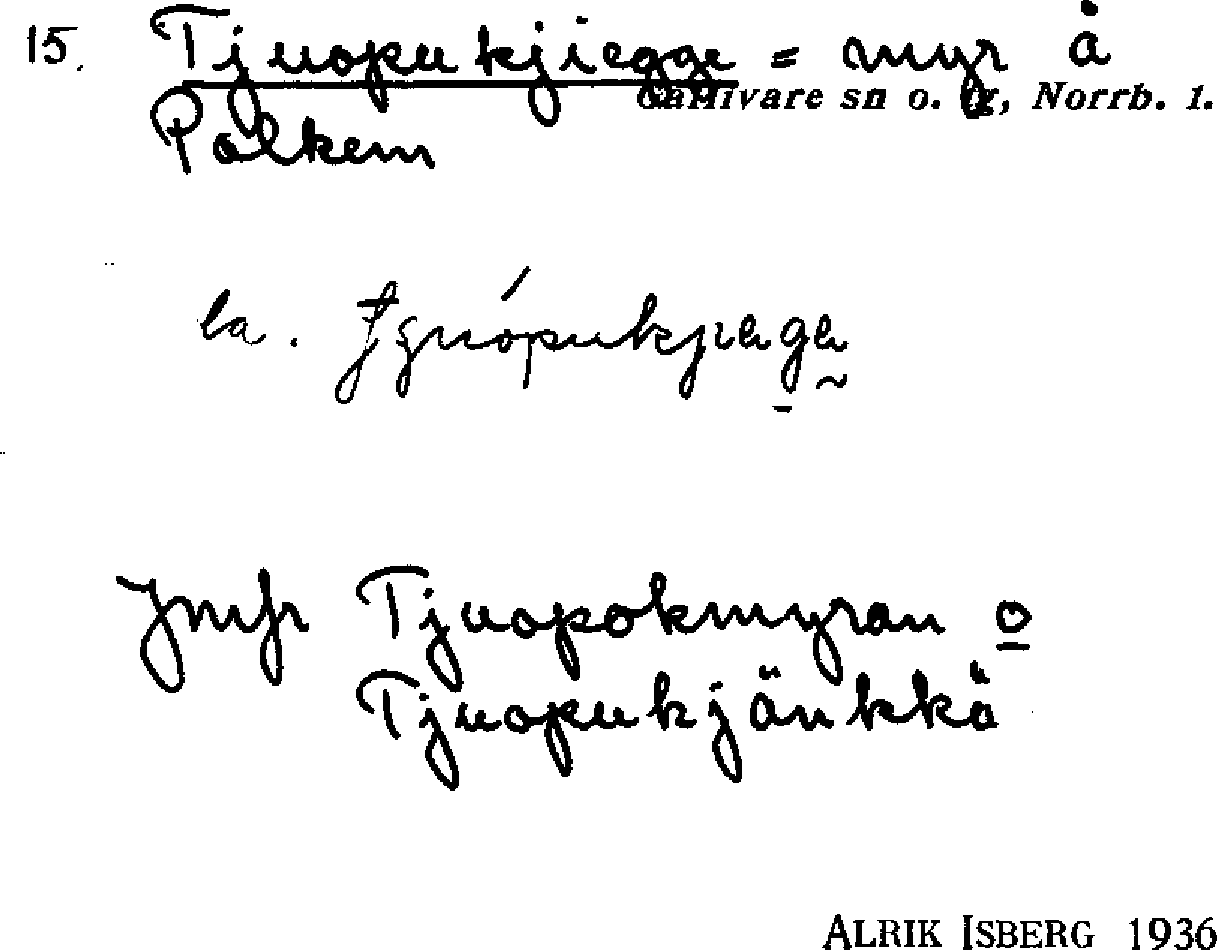 15. Tjuopukjiegge = myr å
Gällivare sn o. lg, Norrb. l.
Polkem
la.
Jmfr Tjuopokmyran o
Tjuopukjänkkä
ALRIK ISBERG 1936